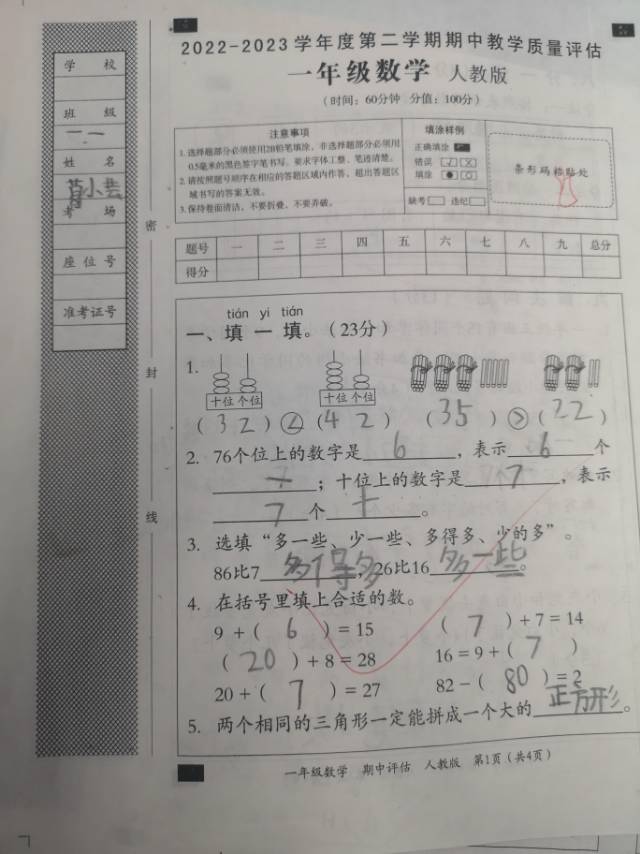 2022-2023学年度第二学期期中教学质量评估
一年级数学 人教版
(时间：60分钟 分值：100分)
学 校
班 级
一.一
姓 名
小芸
考 场
座 位 号
准考证号
密
封
线
注意事项
1.选择题部分必须使用2B铅笔填涂，非选择题部分必须用
0.5毫米的黑色签字笔书写，要求字体工整、笔迹清楚。
2.请按照题号顺序在相应的答题区域内作答，超出答题区
域书写的答案无效。
3.保持卷面清洁，不要折叠、不要弄破。
填涂样例
正确填涂
错误
填涂
缺考 违纪
条形码粘贴处
题号 一 二 三 四 五 六 七 八 九 总分
得分
tián yi tián
一、填一填。(23分)
1.
十位 个位 十位 个位
(32)<(42) (35)>(22)
2. 76个位上的数字是6，表示6个
一；十位上的数字是7，表示
7个十。
3. 选填“多一些、少一些、多得多、少的多”。
86比7多得多，26比16多一些。
4. 在括号里填上合适的数。
9+(6)=15 (7)+7=14
(20)+8=28 16=9+(7)
20+(7)=27 82-(80)=2
5. 两个相同的三角形一定能拼成一个大的正方形。
一年级数学 期中评估 人教版 第1页(共4页)